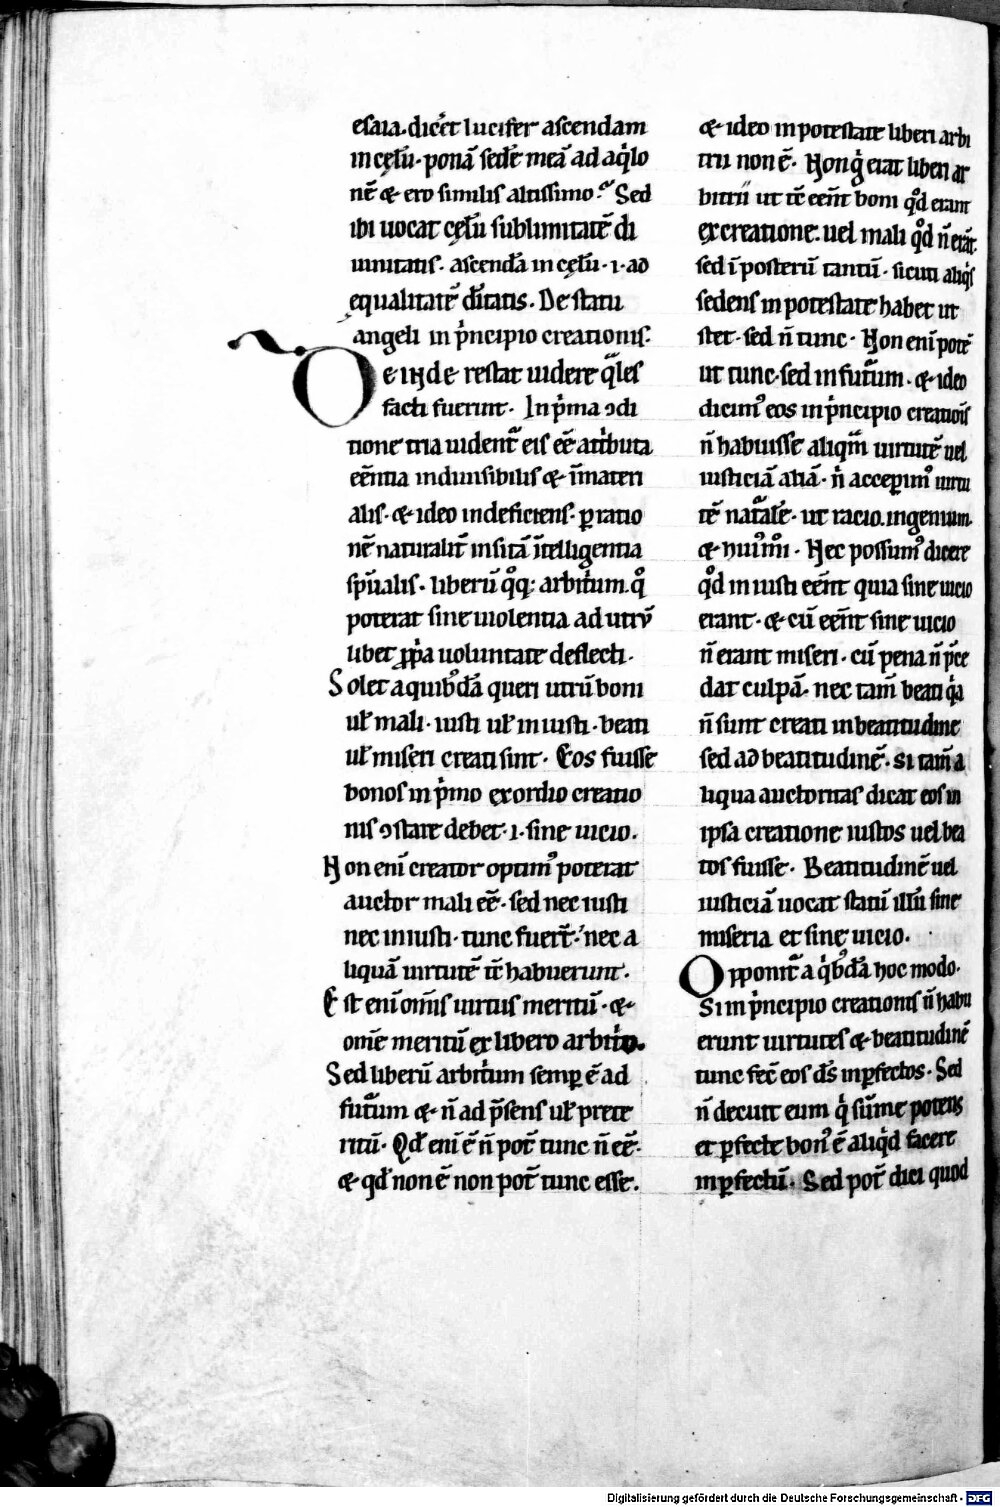 esaia. dicēt lucifer ascendam
in cęlū. ponā sedē meā ad aq̇lo
nē & ero similis altissimo. Sed
ibi uocat cęlū sublimitatē di
uinitatis. ascendā in cęlū .i. ad
equalitatē dītatis. De statu
angeli in p̄ncipio creationis.
Deinde restat uidere q̄les
facti fuerint. In p̄ma ɔdi
tione tria uident᷑ eis eē attͥbuta
eēntia indiuisibilis & īmateri
alis. & ideo indeficiens. ꝑ ratio
nē naturalit᷑ insitā ītelligentia
spūalis. liberū qͦꝗ; arbitͥum. qͦ
poterat sine uiolentia ad utrū
libet ꝓpͥa uoluntate deflecti.
Solet a quibꝰdā queri utrū boni
uƚ mali. iusti uƚ iniusti. beati
uƚ miseri creati sint. Eos fuisse
bonos in pͥmo exordio creatio
nis ɔstare debet .i. sine uicio.
Non enī creator optimꝰ poterat
auctor mali eē. sed nec iusti
nec iniusti. tunc fuer̄t. nec a
liquā uirtutē tc̄ habuerunt.
Est enī omīs uirtus meritū. &
om̄e meritū ex libero arbitͥo.
Sed liberū arbitͥum semꝑ ē ad
futᷓum & n̄ ad p̄sens uƚ prete
ritū. Qd̄ enī ē n̄ pot᷑ tunc n̄ eē.
& qd̄ non ē non pot᷑ tunc esse.
& ideo in potestate liberi arbi
trii non ē. Non gͦ erat liberi ar
bitrii ut tc̄ eēnt boni qͦd erant
ex creatione. uel mali qͦd n̄ erāt.
sed ī posterū tantū. sicuti aliqͥs
sedens in potestate habet ut
stet. sed n̄ tunc. Non enī potē
ut tunc. sed in futᷓum. & ideo
dicimꝰ eos in pͥncipio creationīs
n̄ habuisse aliqᷓm uirtutē uel
iusticiā aliā. n̄ accepimꝰ uirtu
tē natᷓalē. ut racio. ingenium.
Hec possumꝰ dicere
qͦd iniusti eēnt quia sine uicio
erant. & cū eēnt sine uicio
n̄ erant miseri. cū pena n̄ p̄ce
dat culpā. nec tam̄ beati qͥa
n̄ sunt creati in beatitudine
sed ad beatitudinē. Si tam̄ a
liqua auctoritas dicat eos in
ipsa creatione iustos uel bea
tos fuisse. Beatitudinē uel
iusticiā uocat statū illū sine
miseria et sine uicio.
Opponit᷑ a qͥbꝰdā hoc modo.
Si in pͥncipio creationis n̄ habu
erunt uirtutes & beatitudinē
tunc fec̄ eos dꝰs inꝑfectos. Sed
n̄ decuit eum qͥ sūme potens
et ꝑfecte bonꝰ ē aliqͥd facere
inꝑfectū. Sed pot᷑ dici quod
Digitalisierung gefördert durch die Deutsche Forschungsgemeinschaft - DFG